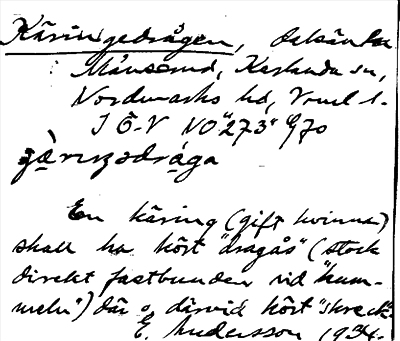 Käringedrågen, delsänka
Månserud, Karlanda sn,
Nordmarks hd, Vrml l.
I Ö-V NO "273" G70
En käring (gift kvinna)
skall ha kört "dragås" (stock
direkt fastbunden vid "hum-
meln") där o. därvid kört "skreck".
E. Andersson 1934.